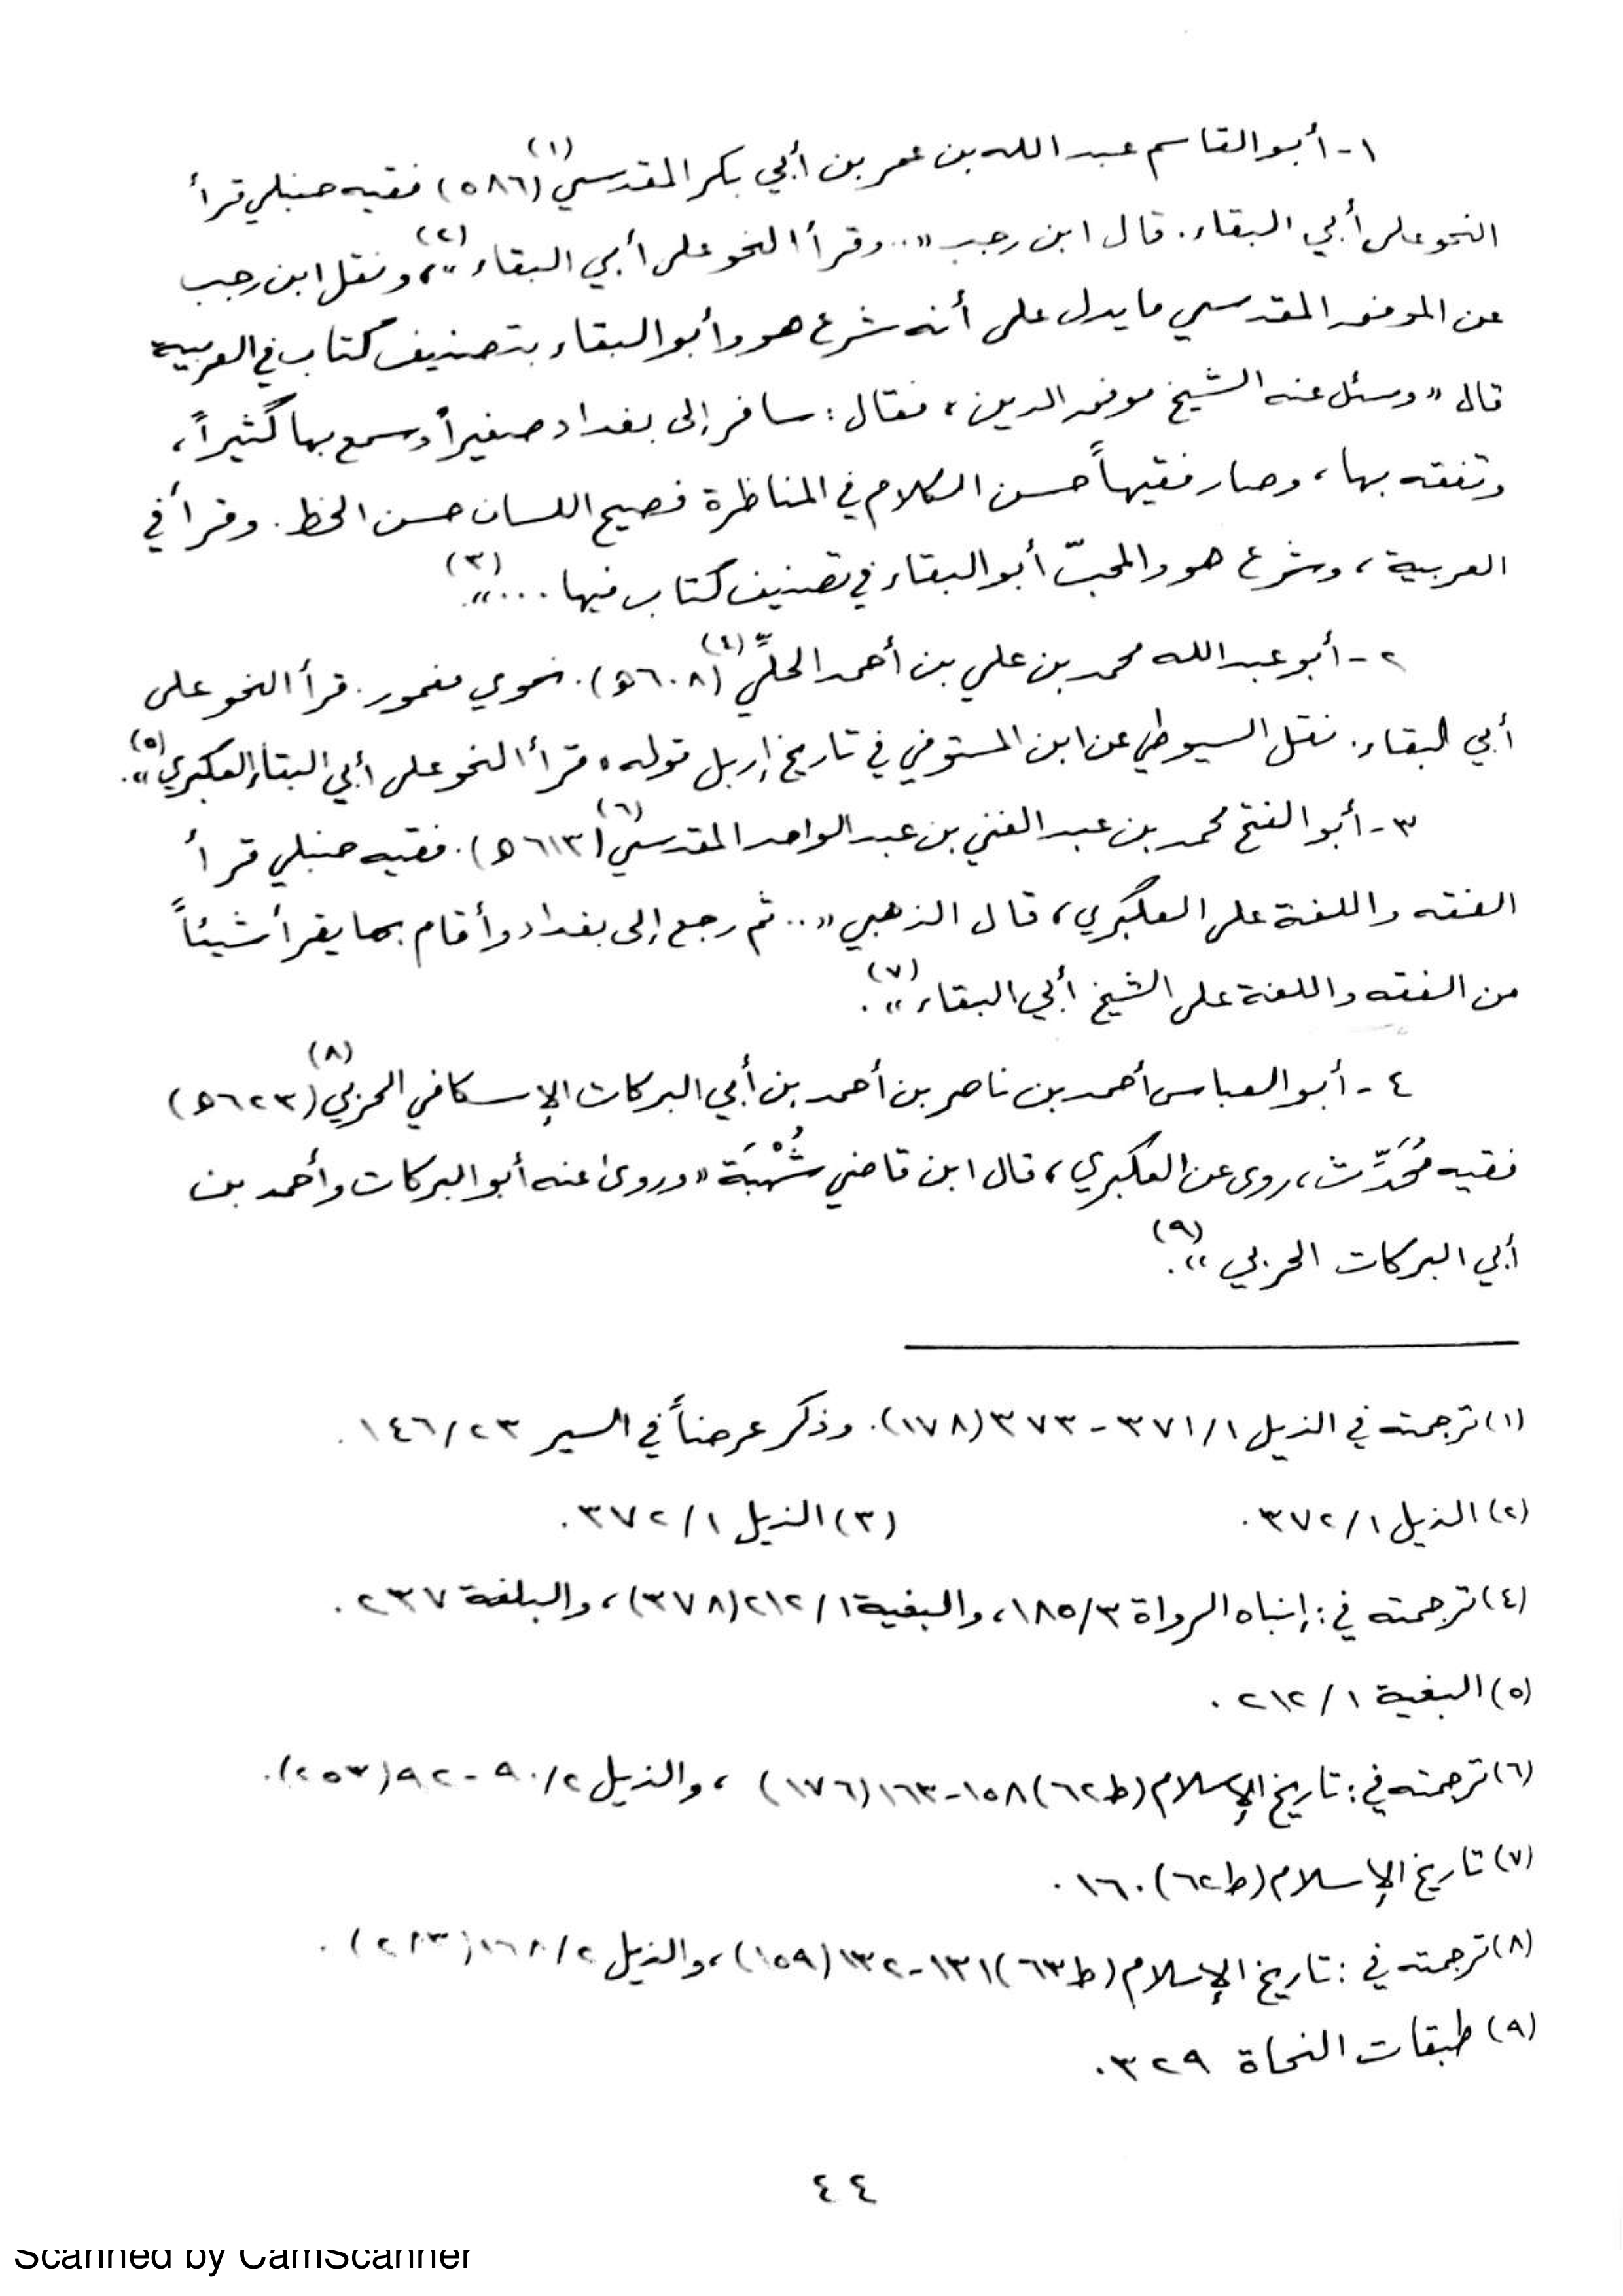 ١- أبو القاسم عبد الله بن عمر بن أبي بكر المقدسي(١) (٥٨٦) فقيه حنبلي قرأ
النحو على أبي البقاء. قال ابن رجب «.. وقرأ النحو على أبي البقاء»(٢)، ونقل ابن رجب
عن الموفق المقدسي ما يدل على أنه شرع هو وأبو البقاء بتصنيف كتاب في العربية
قال «وسئل عنه الشيخ موفق الدين، فقال: سافر إلى بغداد صغيراً وسمع بها كثيراً،
وتفقه بها، وصار فقيهاً حسن الكلام في المناظرة فصيح اللسان حسن الخط. وقرأ في
العربية، وشرع هو والمحبّ أبو البقاء في تصنيف كتاب فيها ...»(٣).
٢- أبو عبد الله محمد بن علي بن أحمد الحلّي(٤) (٦٠٨ﻫ). نحوي مغمور. قرأ النحو على
أبي البقاء. نقل السيوطي عن ابن المستوفي في تاريخ إربل قوله «قرأ النحو على أبي البقاء العكبري»(٥).
٣- أبو الفتح محمد بن عبد الغني بن عبد الواحد المقدسي(٦) (٦١٣ﻫ). فقيه حنبلي قرأ
الفقه واللغة على العكبري، قال الذهبي «.. ثم رجع إلى بغداد وأقام بها يقرأ شيئاً
من الفقه واللغة على الشيخ أبي البقاء»(٧).
٤- أبو العباس أحمد بن ناصر بن أحمد بن أبي البركات الإسكافي الحربي(٨) (٦٢٣ﻫ)
فقيه مُحَدِّث، روى عن العكبري، قال ابن قاضي شُهْبَة «وروى عنه أبو البركات وأحمد بن
أبي البركات الحربي»(٩).
(١) ترجمته في الذيل ٣٧١/١-٣٧٣ (١٧٨). وذكر عرضاً في السير ١٤٦/٢٣.
(٢) الذيل ٣٧٢/١. (٣) الذيل ٣٧٢/١.
(٤) ترجمته في: إنباه الرواة ١٨٥/٣، والبغية ٢١٢/١ (٣٧٨)، والبلغة ٢٣٧.
(٥) البغية ٢١٢/١.
(٦) ترجمته في: تاريخ الإسلام (ط٦٢) ١٥٨-١٦٣ (١٧٦)، والذيل ٩٠/٢-٩٢ (٢٥٣).
(٧) تاريخ الإسلام (ط٦٢) ١٦٠.
(٨) ترجمته في: تاريخ الإسلام (ط٦٣) ١٣١-١٣٢ (١٥٩)، والذيل
(٩) طبقات النحاة ٣٢٩.
٤٤
Scanned by CamScanner